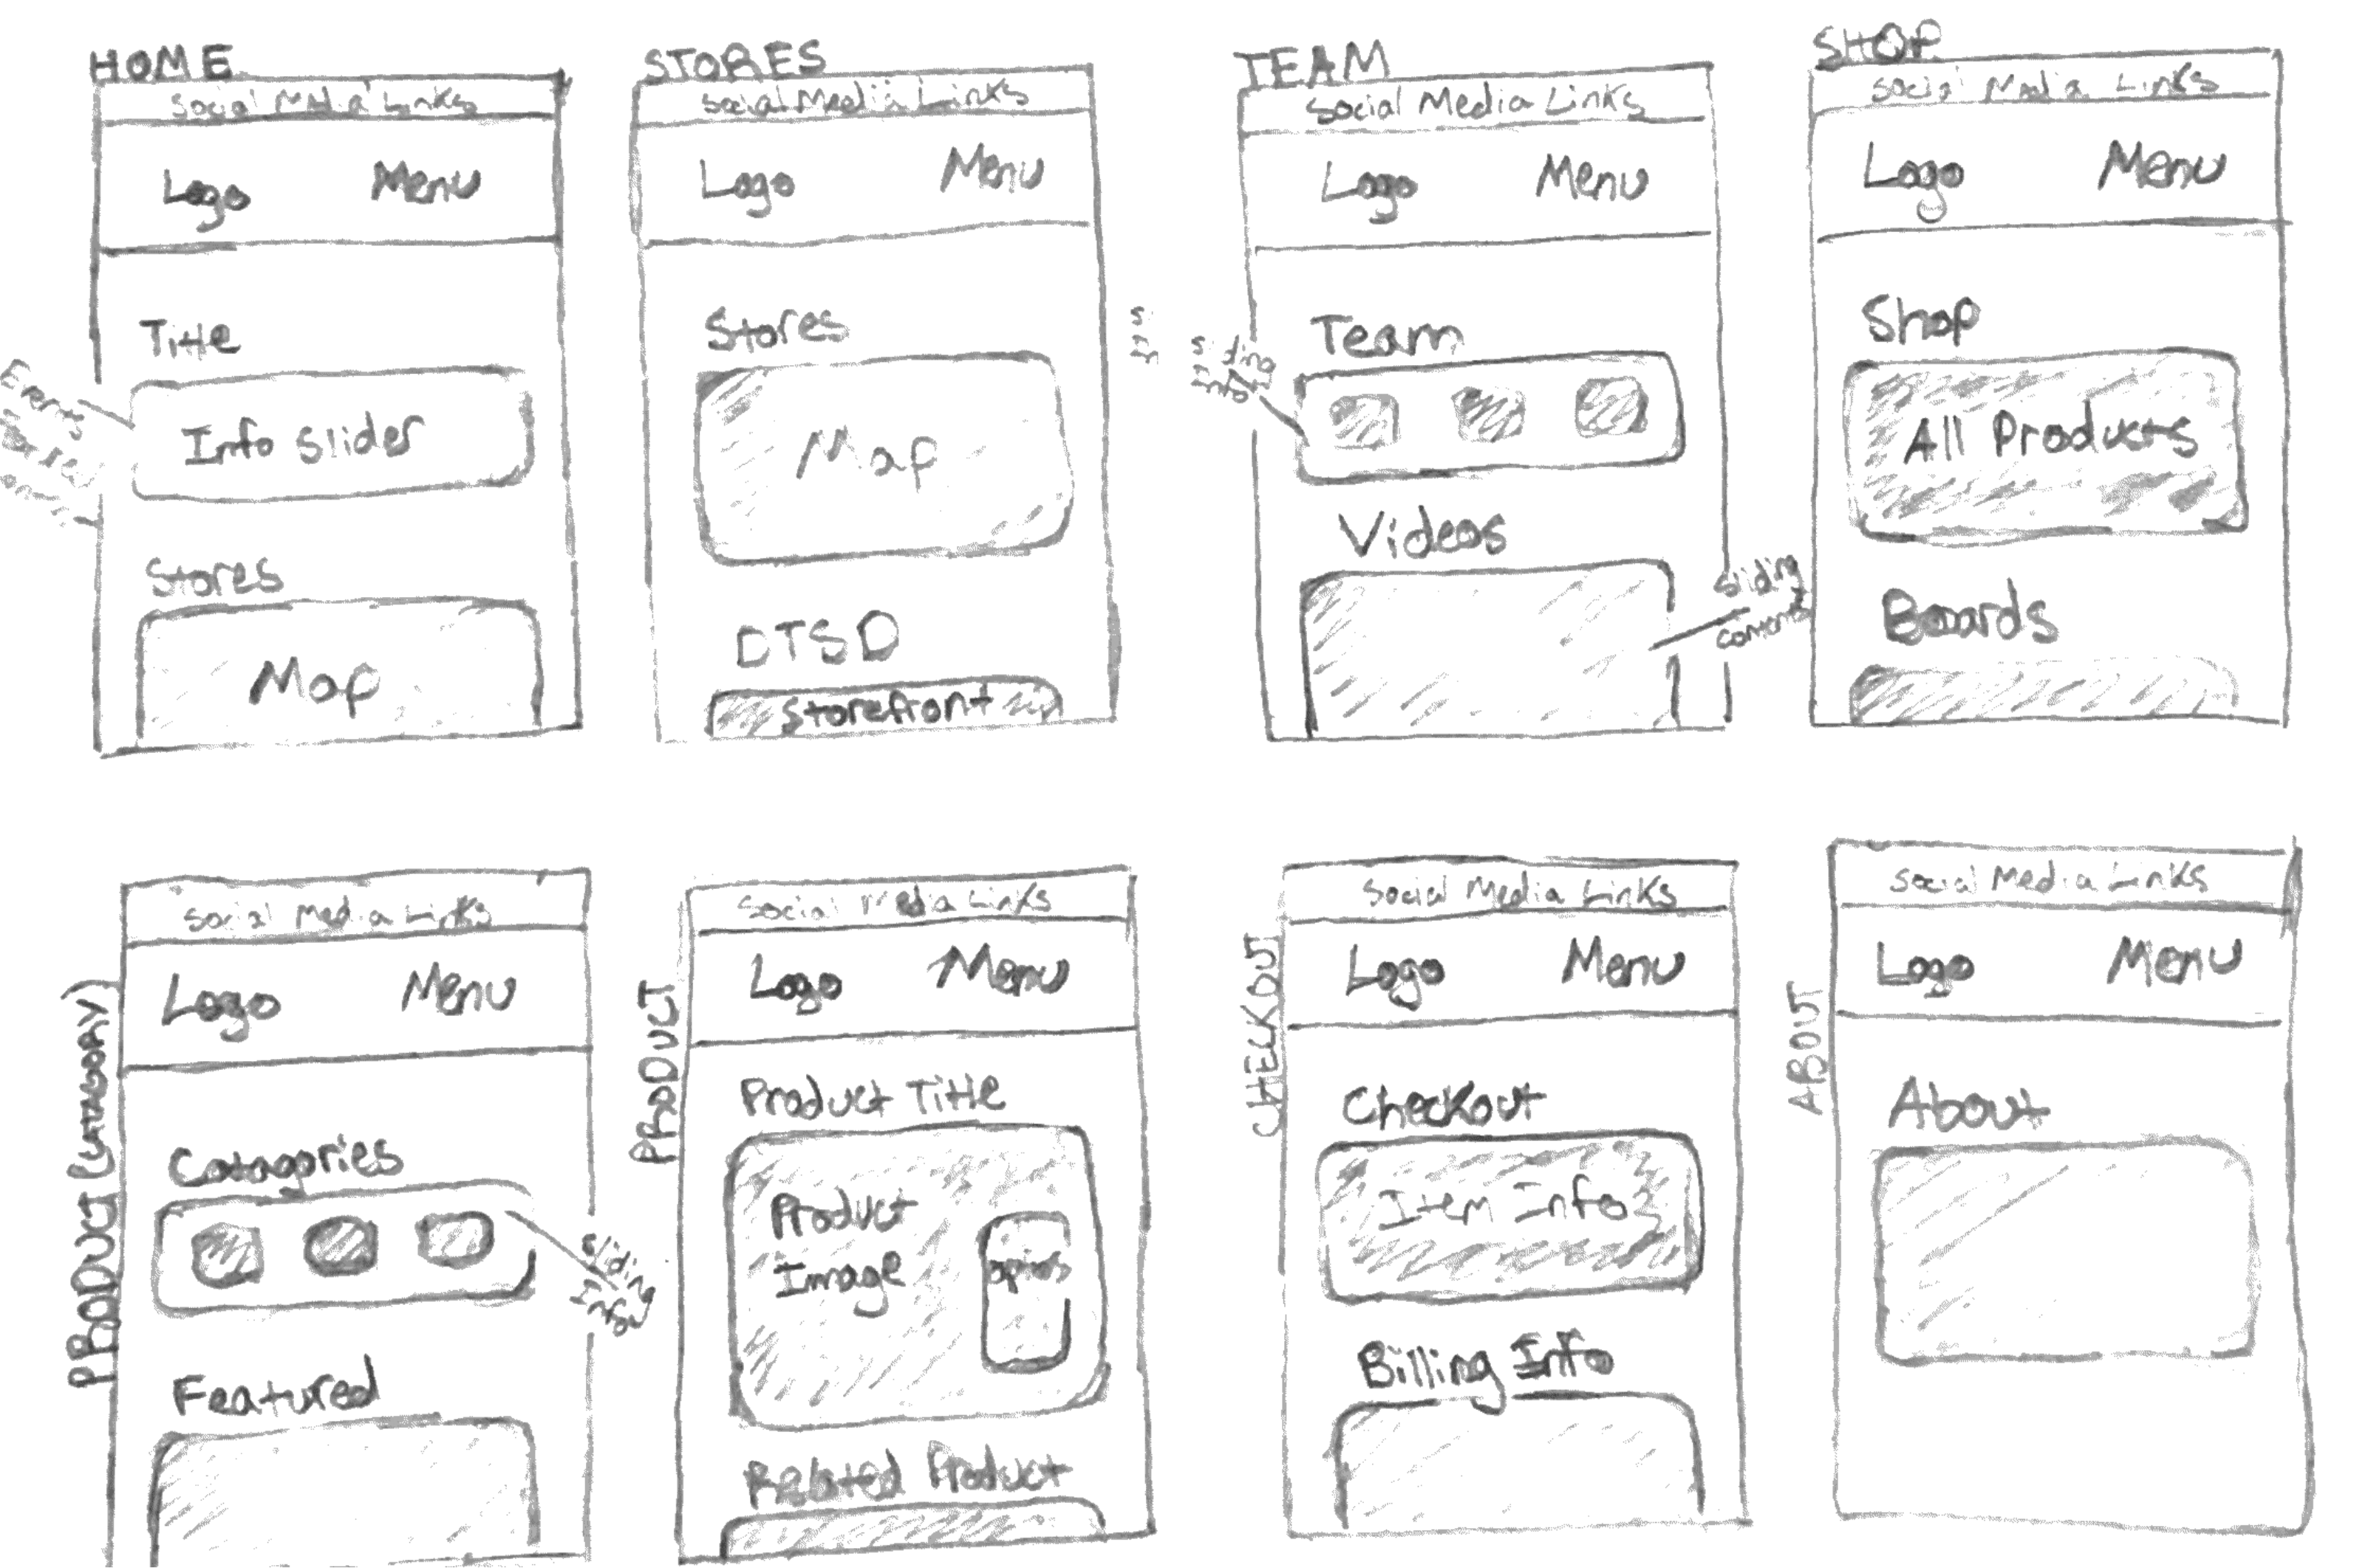 HOME
Social Media Links
Logo Menu
Title
Events
Info Slider
Stores
Map
STORES
Social Media Links
Logo Menu
Stores
Map
DTSD
Storefront
TEAM
Social Media Links
Logo Menu
Team
Sliding
Info
Videos
Sliding
Content
SHOP
Social Media Links
Logo Menu
Shop
All Products
Boards
PRODUCT (CATAGORY)
Social Media Links
Logo Menu
Catagories
Sliding
Info
Featured
PRODUCT
Social Media Links
Logo Menu
Product Title
Product
Image
Related Product
CHECKOUT
Social Media Links
Logo Menu
Checkout
Item Info
Billing Info
ABOUT
Social Media Links
Logo Menu
About